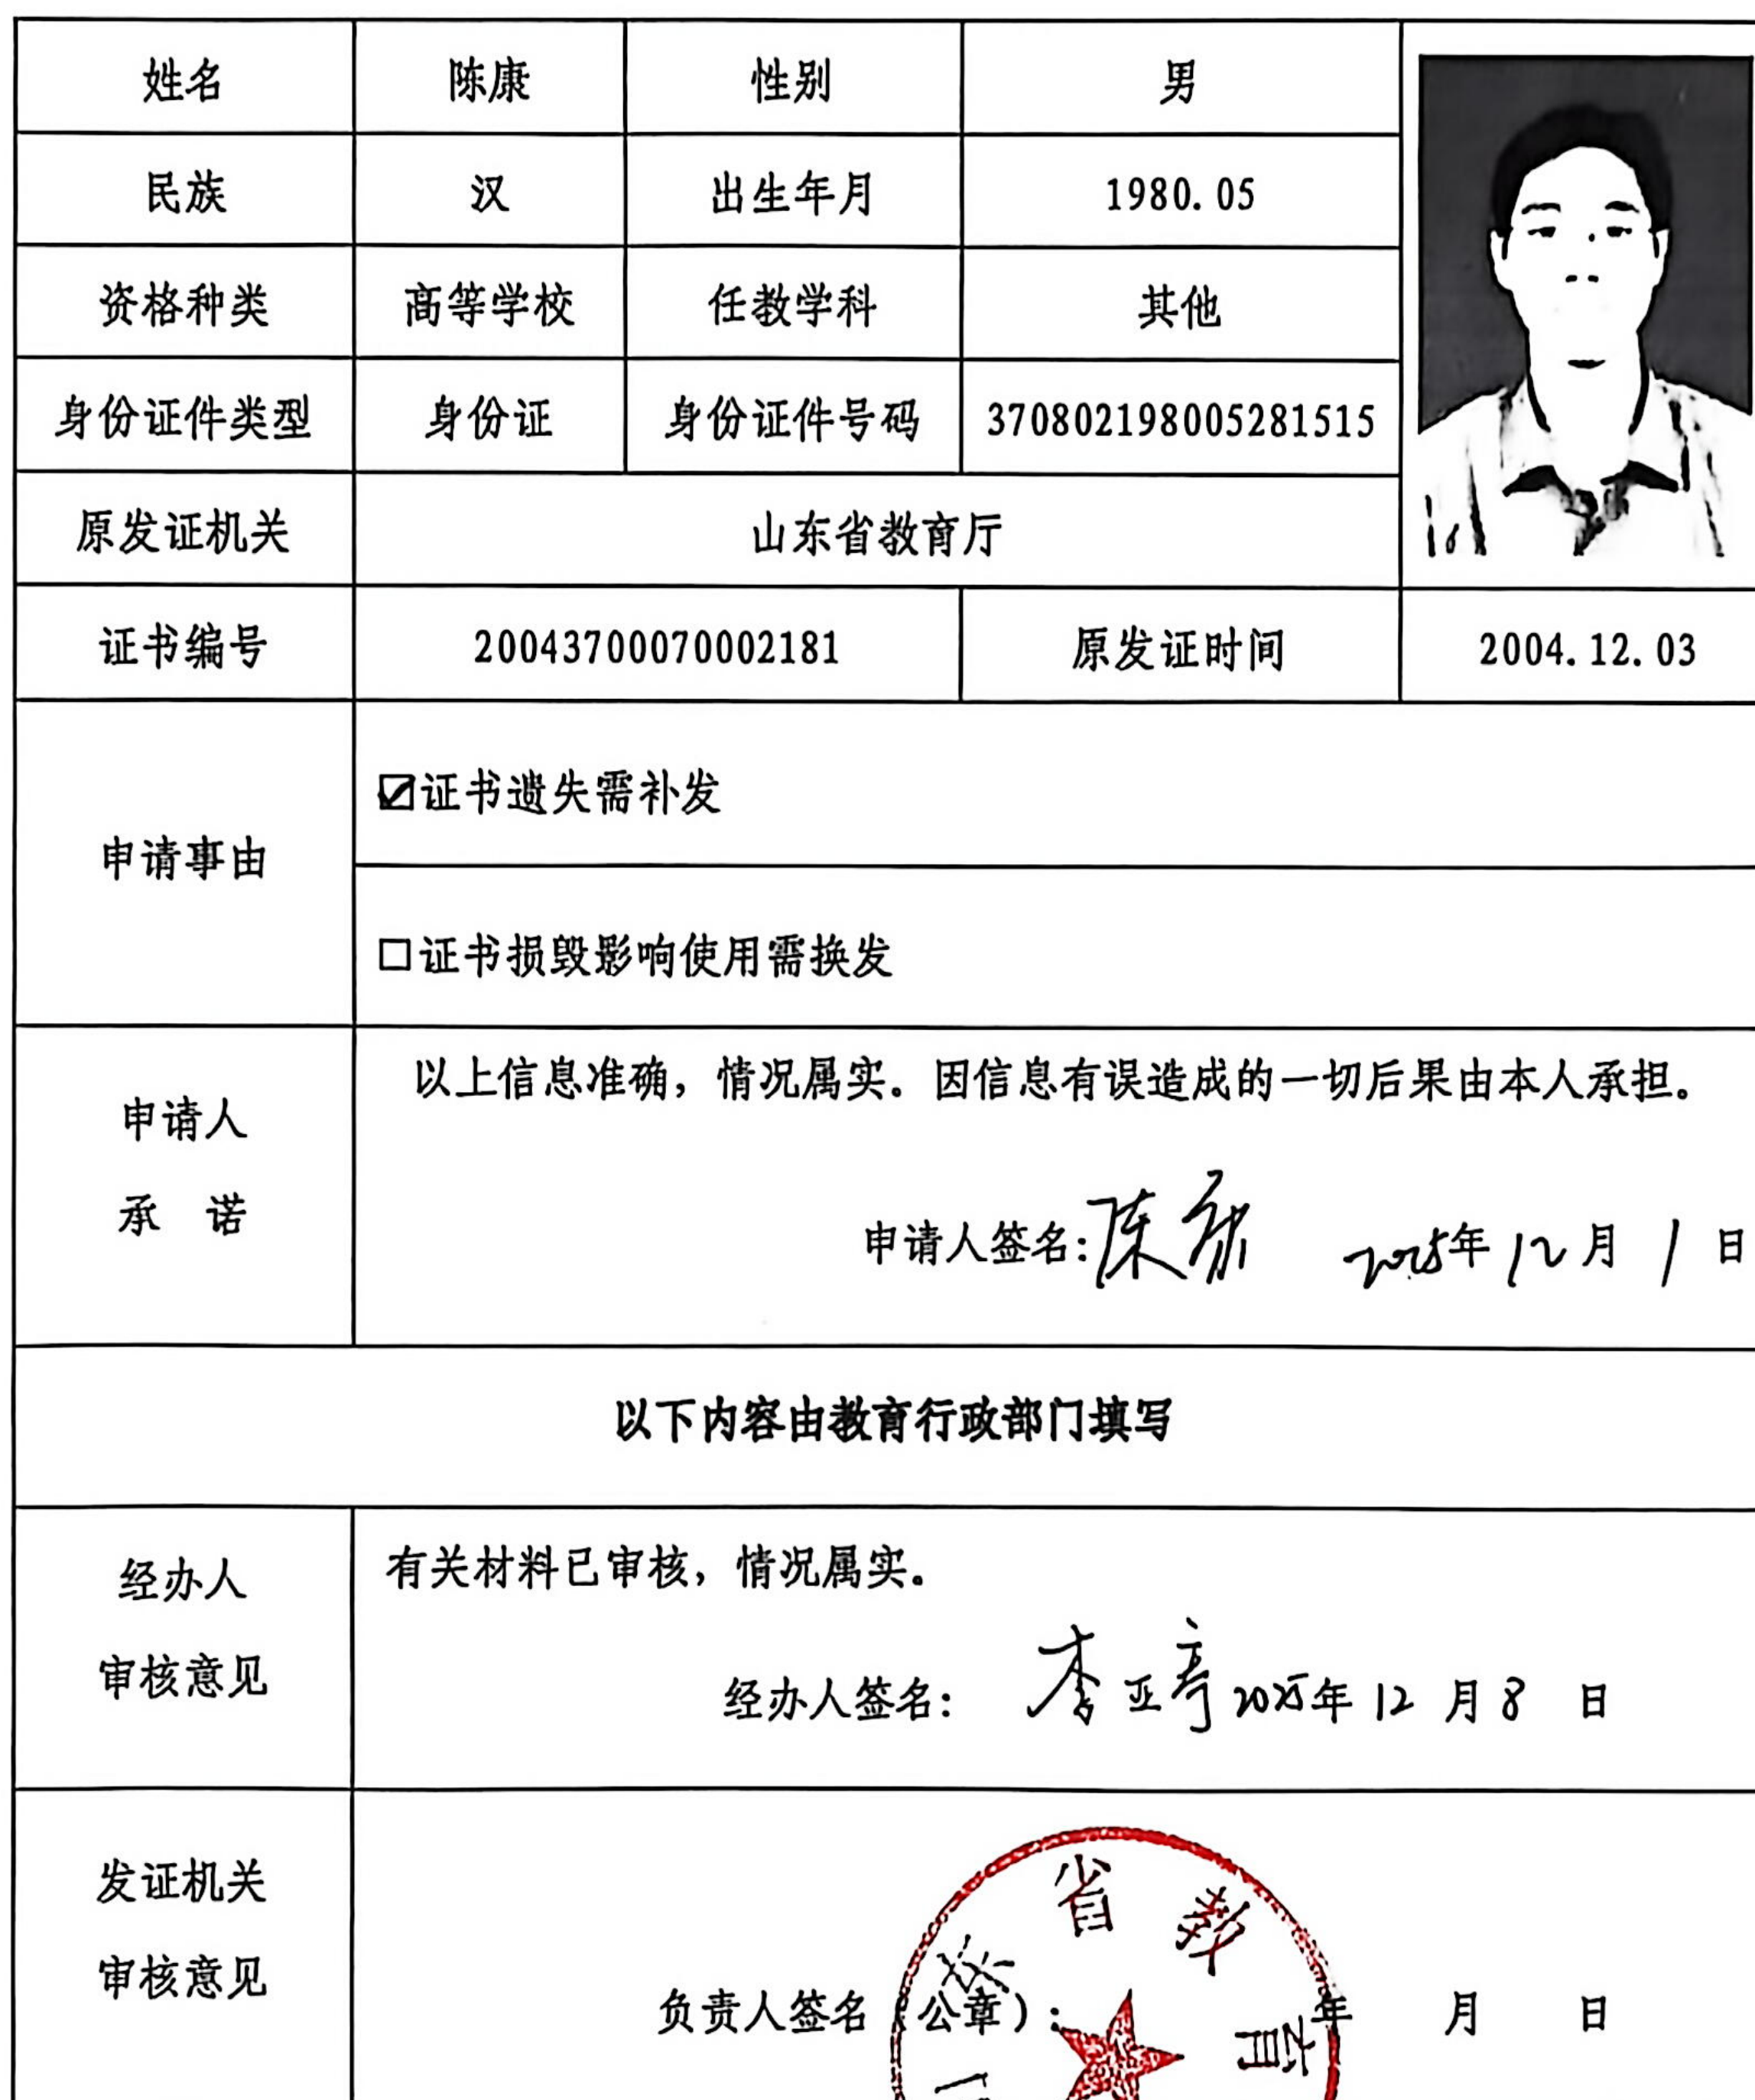 姓名 陈康 性别 男
民族 汉 出生年月 1980.05
资格种类 高等学校 任教学科 其他
身份证件类型 身份证 身份证件号码 370802198005281515
原发证机关 山东省教育厅
证书编号 20043700070002181 原发证时间 2004.12.03
申请事由
☑证书遗失需补发
☐证书损毁影响使用需换发
申请人
承 诺
以上信息准确，情况属实。因信息有误造成的一切后果由本人承担。
申请人签名：陈康 2025年12月1日
以下内容由教育行政部门填写
经办人
审核意见
有关材料已审核，情况属实。
经办人签名： 李亚奇 2025年12月8日
发证机关
审核意见
负责人签名（公章）： 年 月 日
东省教育